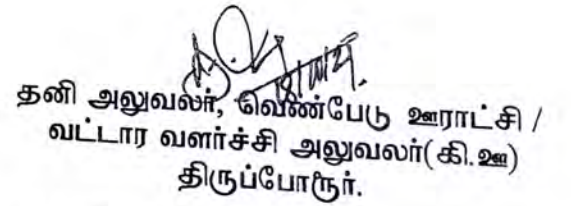 தனி அலுவலர், வெண்பேடு ஊராட்சி /
வட்டார வளர்ச்சி அலுவலர்(கி.ஊ)
திருப்போரூர்.